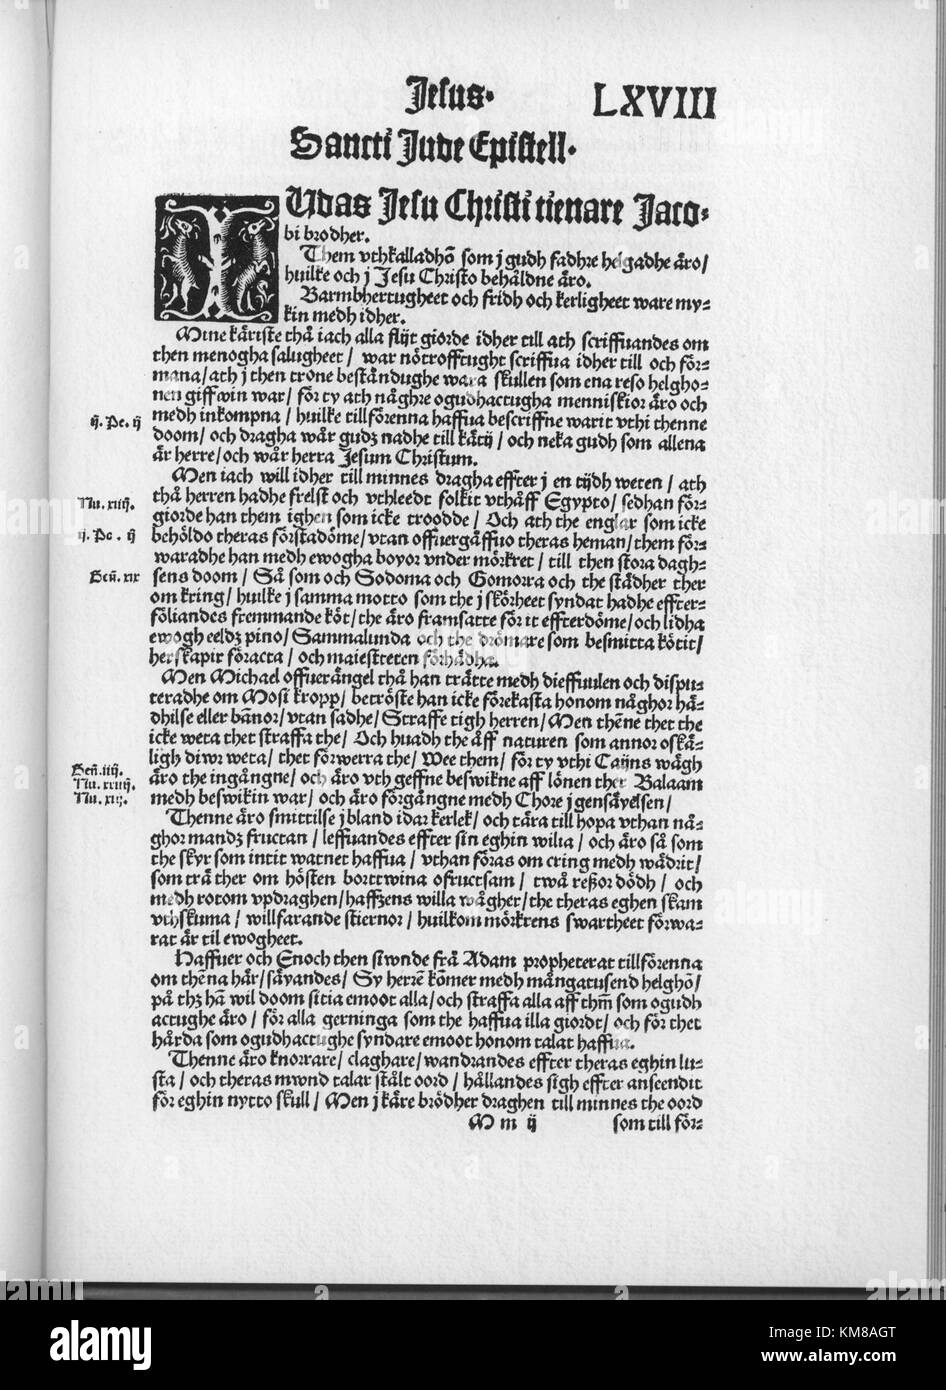 Jesus.
LXVIII
Sancti Jude Epistell.
IUdas Jesu Christi tienare Jaco⸗
bi brodher.
Them vthkalladhō som j gudh fadhre helgadhe äro/
huilke och j Jesu Christo behåldne äro.
Barmhertugheet och fridh och kerligheet ware my⸗
kin medh idher.
Mine käriste thå iach alla flijt giorde idher till ath scriffuandes om
then menogha salugheet/ war nötrofftught scriffua idher till och för⸗
mana/ ath j then trone beståndughe wara skullen som ena reso helgho⸗
nen giffwin war/ för ty ath någhre ogudhactugha menniskior äro och
medh inkompna/ huilke tillförenna haffua bescriffne warit vthi thenne
ij. Pe. ij
doom/ och dragha wår gudz nadhe till kätij/ och neka gudh som allena
är herre/ och wår herra Jesum Christum.
Men iach will idher till minnes dragha effter j en tijdh weten/ ath
Nu. xiiij.
thå herren hadhe frelst och vthleedt folkit vthåff Egypto/ sedhan för⸗
giorde han them ighen som icke troodde/ Och ath the englar som icke
ij. Pe. ij
behöldo theras förstadöme/ vtan offuergåffuo theras heman/ them för⸗
waradhe han medh ewogha boyor vnder mörkret/ till then stora dagh⸗
Gen̄. xix
sens doom/ Så som och Sodoma och Gomorra och the städher ther
om kring/ huilke j samma motto som the j skörheet syndat hadhe effter⸗
föliandes fremmande köt/ the äro framsatte för it effterdöme/ och lidha
ewogh eeldz pino/ Sammalunda och the drömare som besmitta kötit/
herskapit föracta/ och maiestreten förhädha.
Men Michael offuerängel thå han trätte medh dieffuulen och dispu⸗
teradhe om Mosi kropp/ betröste han icke förekasta honom någhor hå⸗
dhilse eller bannor/ vtan sadhe/ Straffe tigh herren/ Men thēne thet the
icke weta thet straffa the/ Och huadh the åff naturen som annor oskä⸗
ligh diwr weta/ thet förwerra the/ Wee them/ för ty vthi Cayns wägh
Gen̄. iiij.
äro the ingångne/ och äro vth geffne beswikne aff lönen ther Balaam
Nu. xxiiij.
Nu. xij.
medh beswikin war/ och äro förgångne medh Chore j gensäyelsen/
Thenne äro smittilse j bland idar kerlek/ och tära till hopa vthan nå⸗
ghor mandz fructan/ leffuandes effter sin eghin wilia/ och äro så som
the skyr som intit watnet haffua/ vthan föras om cring medh wädrit/
som trä ther om hösten borttwina ofructsam/ twå reßor dödh/ och
medh rotom vpdraghen/ haffzens willa wågher/ the theras eghen skam
vthskuma/ willfarande stiernor/ huilkom mörkrens swartheet förwa⸗
rat är til ewogheet.
Haffuer och Enoch then siwnde frå Adam propheterat tillförenna
om thēna här/ säyandes/ Sy herrē kōmer medh mångatusend helghō/
på thz hā wil doom sitia emoot alla/ och straffa alla aff thm̄ som ogudh
actughe äro/ för alla gerninga som the haffua illa giordt/ och för thet
hårda som ogudhactughe syndare emoot honom talat haffua.
Thenne äro knorrare/ claghare/ wandrandes effter theras eghin lu⸗
sta/ och theras mwnd talar stålt oord/ hållandes sigh effter anseendit
för eghin nytto skull/ Men j käre brödher draghen till minnes the oord
M m ij
som till för⸗
alamy
Image ID: KM8AGT
www.alamy.com